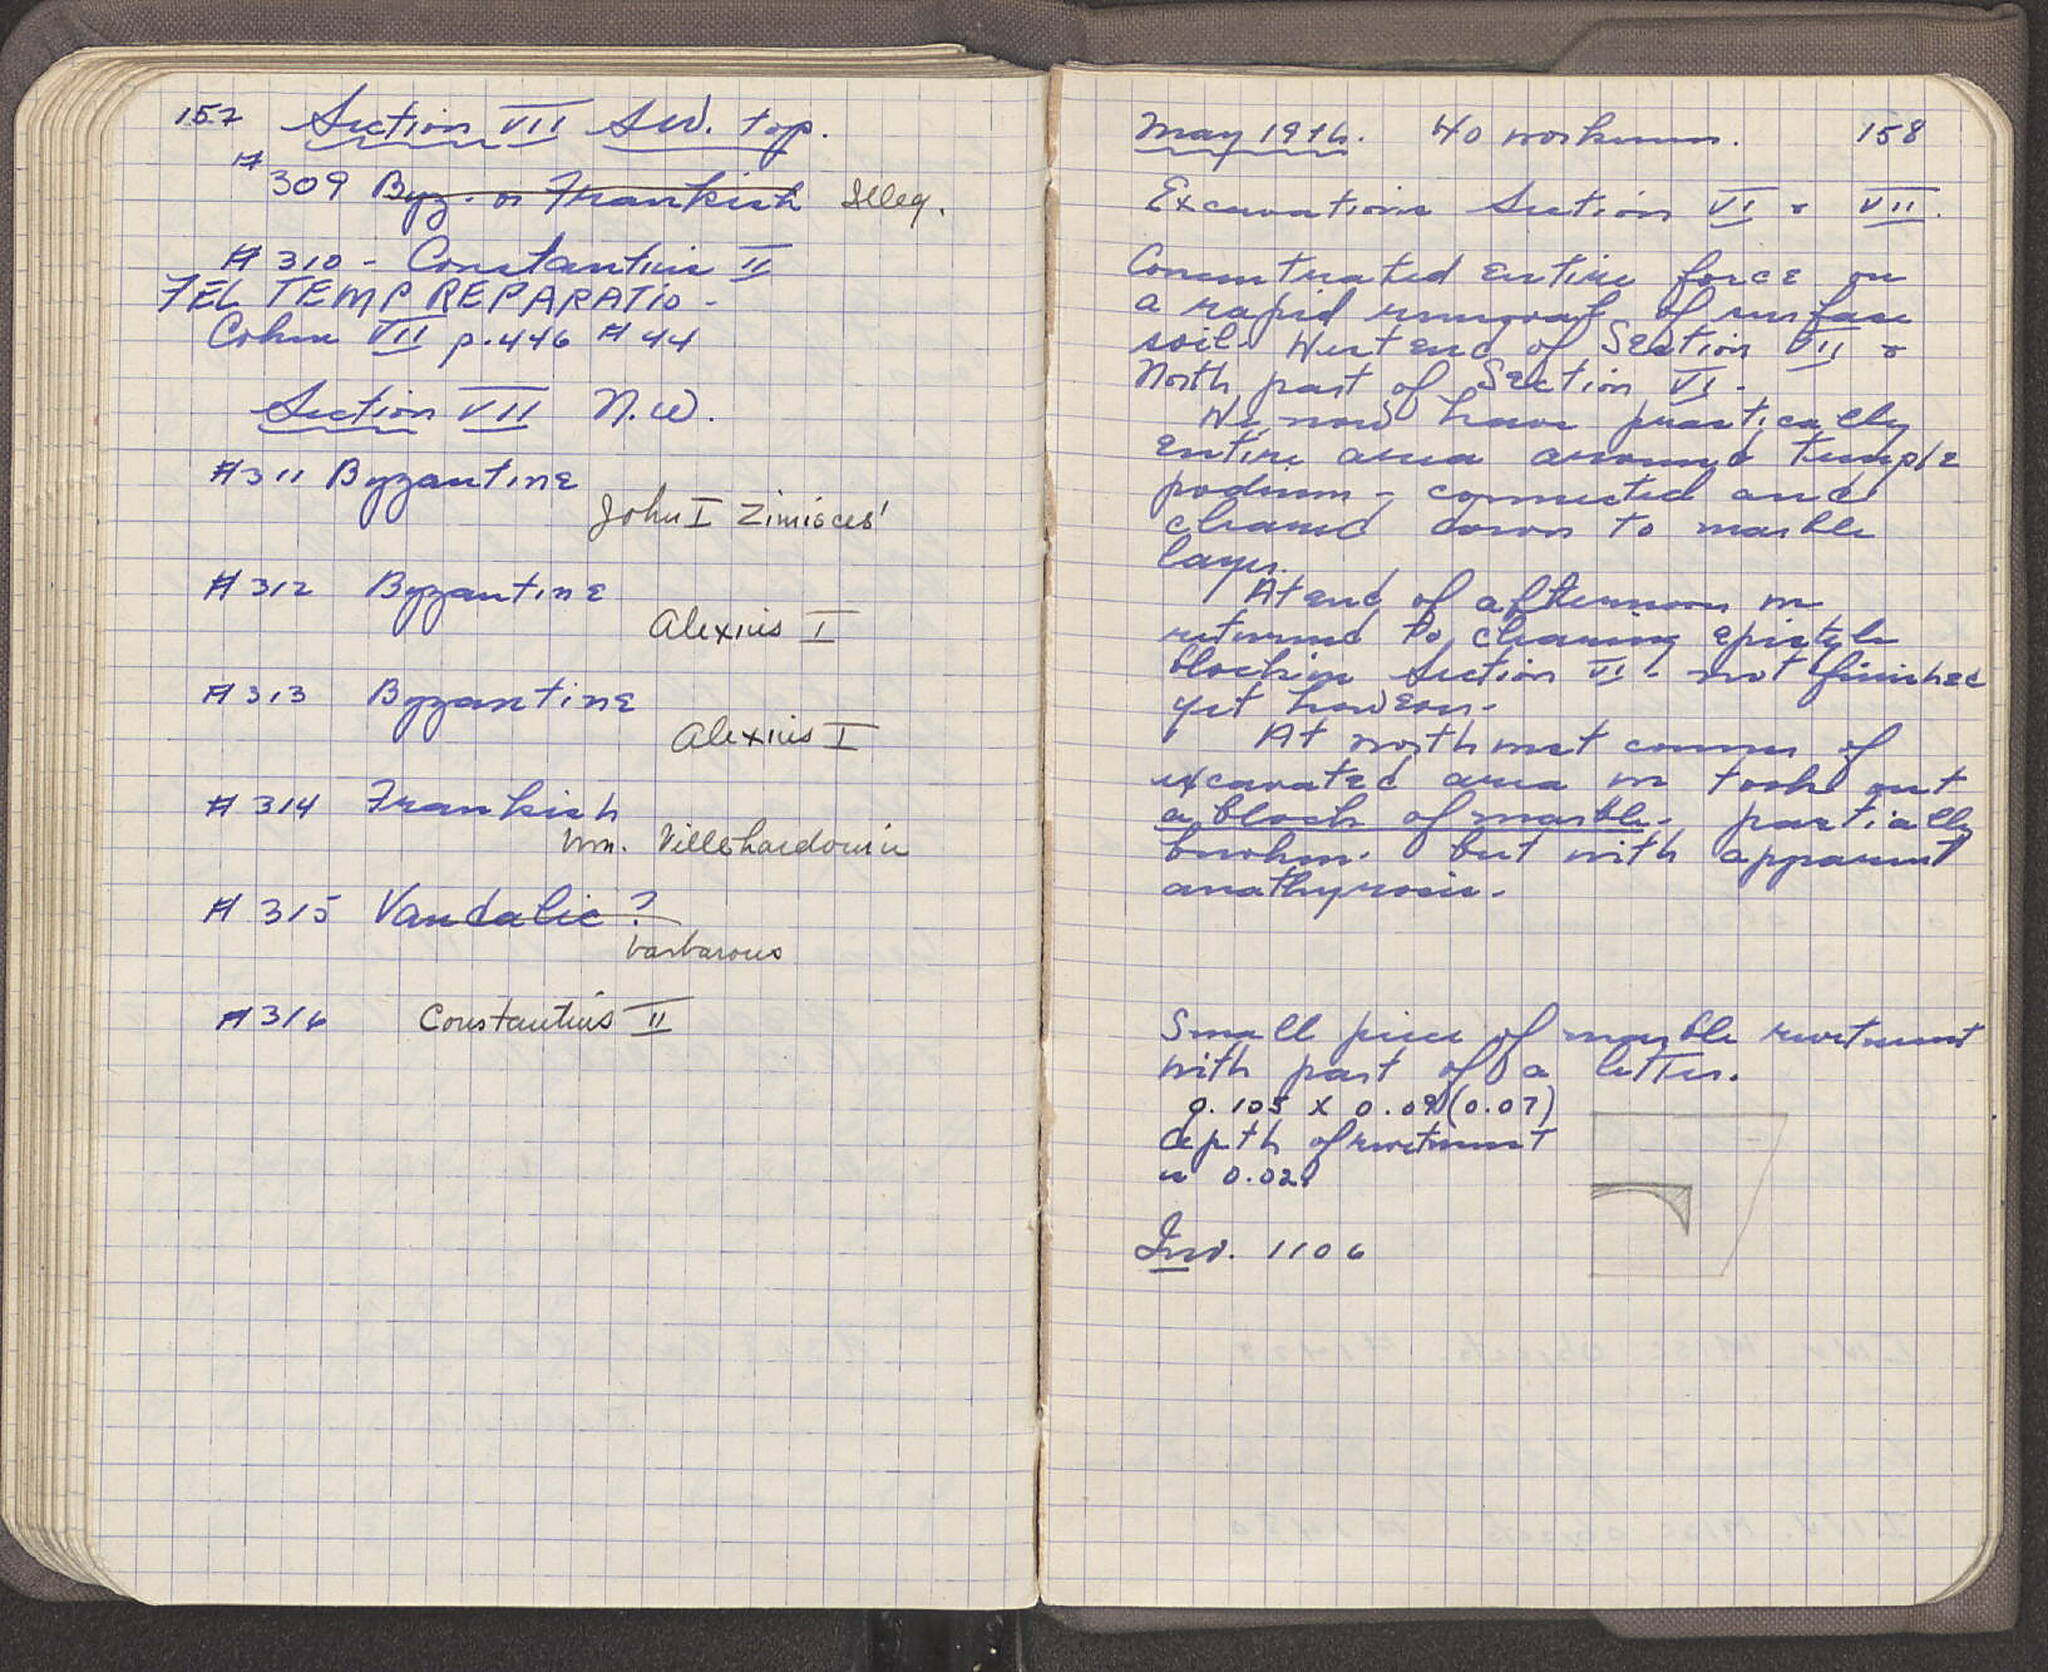 157 Section VII SW. top.
#309 Byz. or Frankish Illeg.
#310 - Constantius II
FEL TEMP REPARATIO -
Cohen VII p.446 #44
Section VII N.W.
#311 Byzantine
John I Zimisces'
#312 Byzantine
Alexius I
#313 Byzantine
Alexius I
#314 Frankish
Wm. Villehardouin
#315 Vandalic ?
barbarous
#316 Constantius II
May 19th. 40 workmen. 158
Excavations Section VI & VII.
Concentrated entire force on
a rapid removal of surface
soil. West end of Section VII &
North part of Section VI.
We now have practically
entire area around temple
podium - connected and
cleared down to marble
layer.
At end of afternoon we
returned to clearing epistyle
blocks in Section VI - not finished
yet however.
At northwest corner of
excavated area we took out
a block of marble - partially
broken. but with apparent
anathyrosis.
Small piece of marble revetment
with part of a letter.
0.105 x 0.09 (0.07)
depth of revetment
is 0.021
Inv. 1106